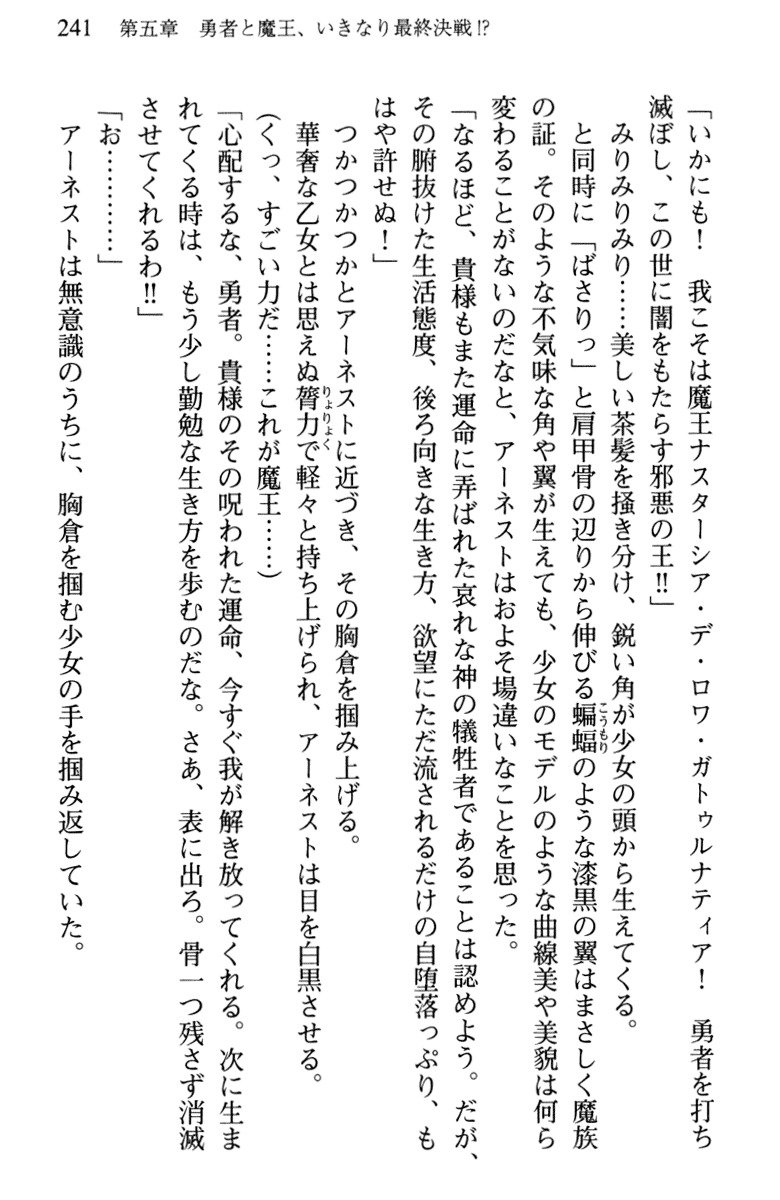 241　第五章　勇者と魔王、いきなり最終決戦!?
「いかにも！　我こそは魔王ナスターシア・デ・ロワ・ガトゥルナティア！　勇者を打ち
滅ぼし、この世に闇をもたらす邪悪の王!!」
　みりみりみり……美しい茶髪を掻き分け、鋭い角が少女の頭から生えてくる。
　と同時に「ばさりっ」と肩甲骨の辺りから伸びる蝙蝠こうもりのような漆黒の翼はまさしく魔族
の証。そのような不気味な角や翼が生えても、少女のモデルのような曲線美や美貌は何ら
変わることがないのだなと、アーネストはおよそ場違いなことを思った。
「なるほど、貴様もまた運命に弄ばれた哀れな神の犠牲者であることは認めよう。だが、
その腑抜けた生活態度、後ろ向きな生き方、欲望にただ流されるだけの自堕落っぷり、も
はや許せぬ！」
　つかつかつかとアーネストに近づき、その胸倉を掴み上げる。
　華奢な乙女とは思えぬ膂力りょりょくで軽々と持ち上げられ、アーネストは目を白黒させる。
（くっ、すごい力だ……これが魔王……）
「心配するな、勇者。貴様のその呪われた運命、今すぐ我が解き放ってくれる。次に生ま
れてくる時は、もう少し勤勉な生き方を歩むのだな。さあ、表に出ろ。骨一つ残さず消滅
させてくれるわ!!」
「お…………」
　アーネストは無意識のうちに、胸倉を掴む少女の手を掴み返していた。